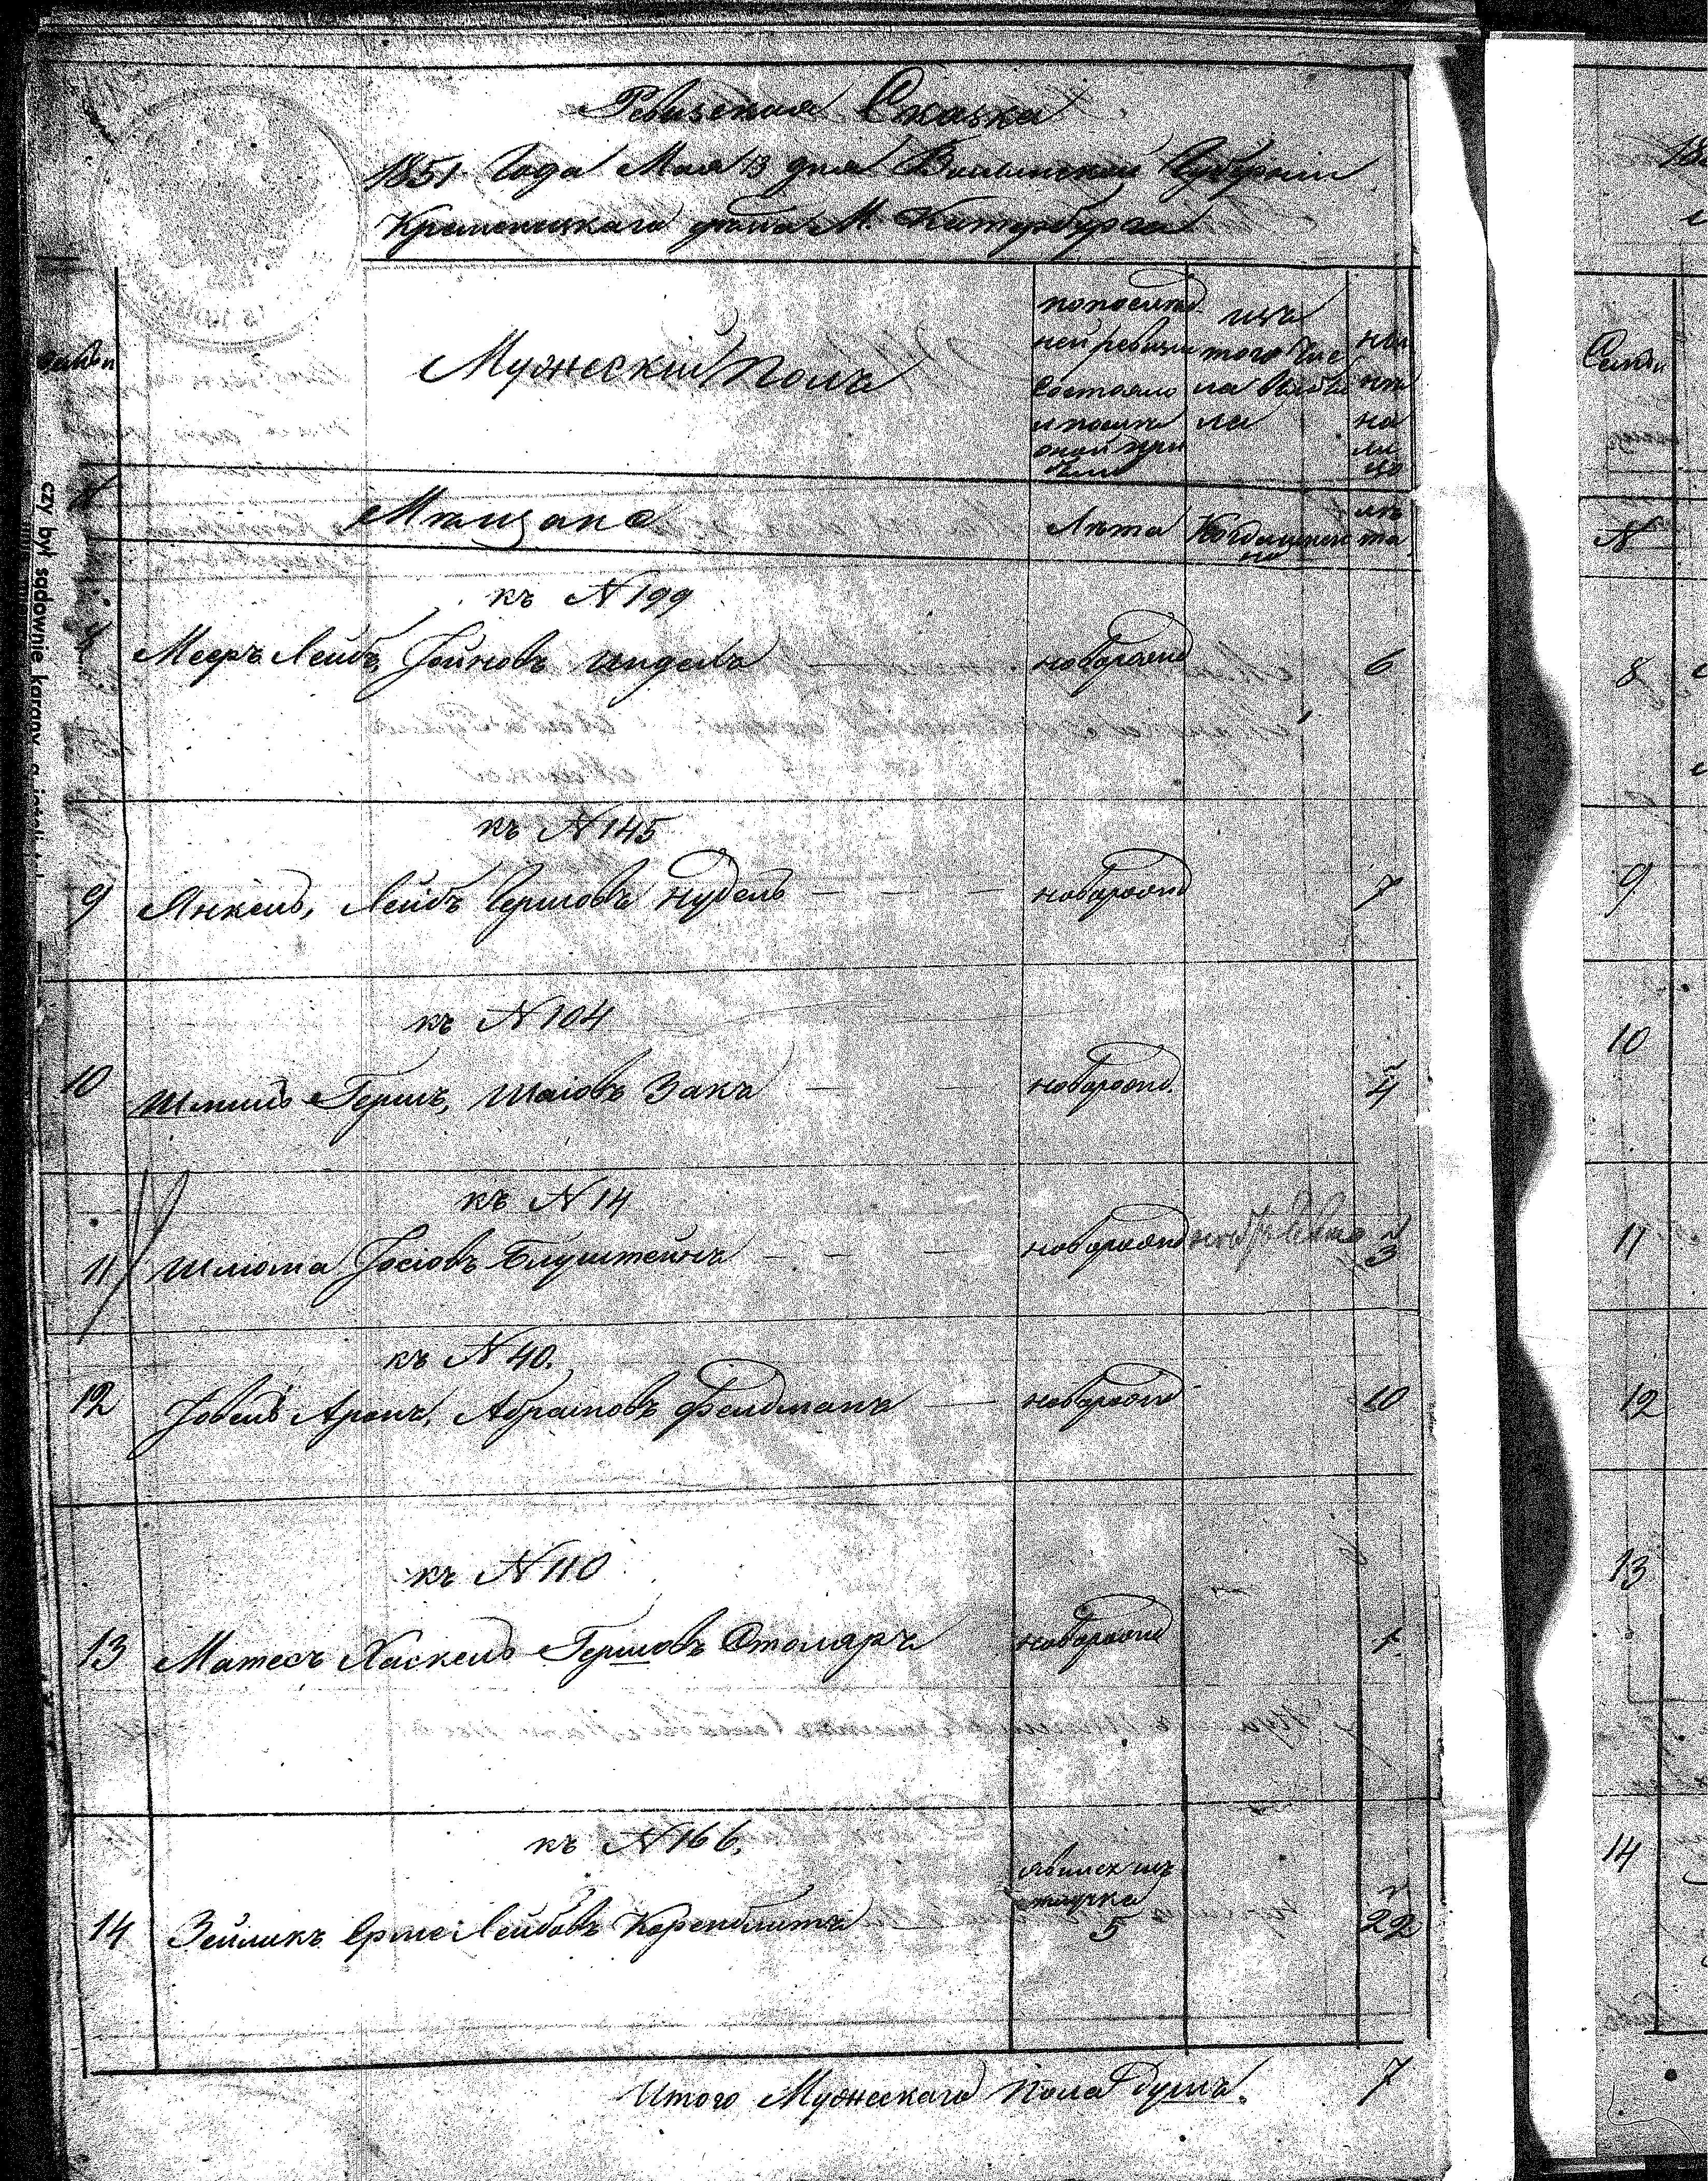 Ревизская Сказка
1851 Года Мая 13 дня Волынской Губернии
Кременецкаго уѣзда М. Катербурга
Семьи
Мужескій Полъ
по послѣд
ней ревизіи
состояло
и послѣ
оной при
было
изъ
того чис
ла выбы
ло
ны
нѣ
на
ли
цо
Семьи
Мѣщане
Лѣта
Когда именно
лѣ
та
N
къ N 199
Меер Лейб, Іойнов Индель
новорожд
6
8
къ N 145
9 Янкель, ЛейбъЕршовъ Нудель — — — новорожд 7
9
къ N 104
10 Шмиль Гершъ, Шаіовъ Закъ — — новорожд. 4
10
къ N 14
11 Шліома Іосіовъ Блуштейнъ — — — новорожд 3
11
къ N 40.
12 Іовель Аронъ, Абрамовъ Фельдманъ — новорожд 10
12
къ N 110
13 Матесъ Хаскель Гершовъ Столяръ новорожд 1
13
къ N 166.
14 Зейликъ Ершъ Лейбовъ Керенблитъ
5
22
14
Итого Мужескаго Пола душъ. 7
czy był sądownie karany, a jeżeli